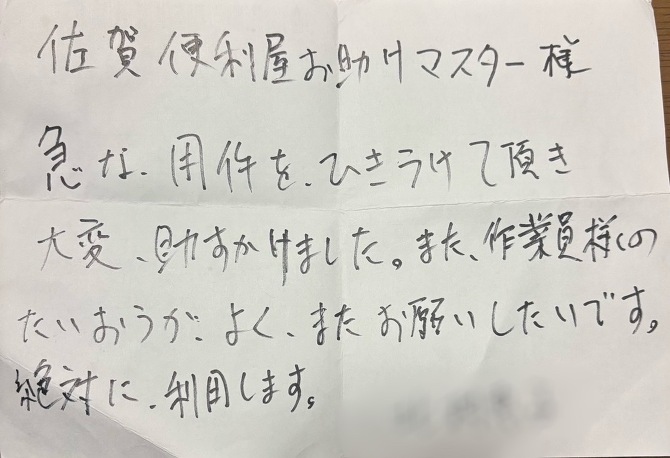 佐賀便利屋お助けマスター様
急な、用件を、ひきうけて頂き
大変、助すかけました。また、作業員様の
たいおうが、よく、またお願いしたいです。
絶対に、利用します。